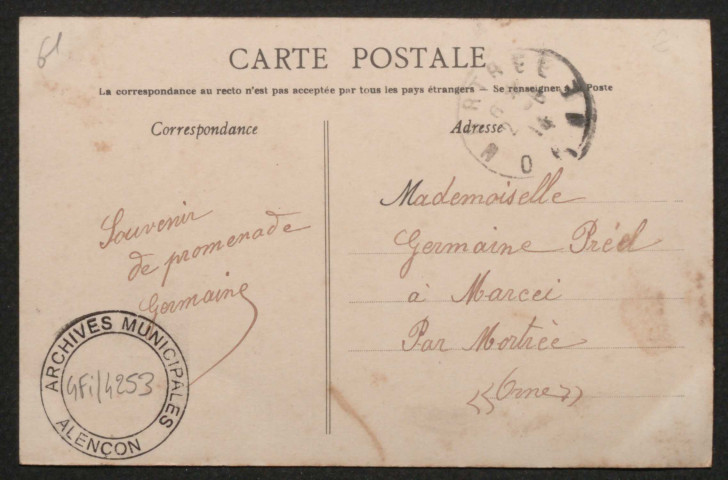 61
CARTE POSTALE
La correspondance au recto n'est pas acceptée par tous les pays étrangers - Se renseigner à la Poste
Correspondance
Adresse
Souvenir
de promenade
Germaine
Mademoiselle
Germaine Préel
à Marcei
Par Mortrée
((Orne))
MORTRÉE
ARCHIVES MUNICIPALES
4Fi/4253
ALENÇON